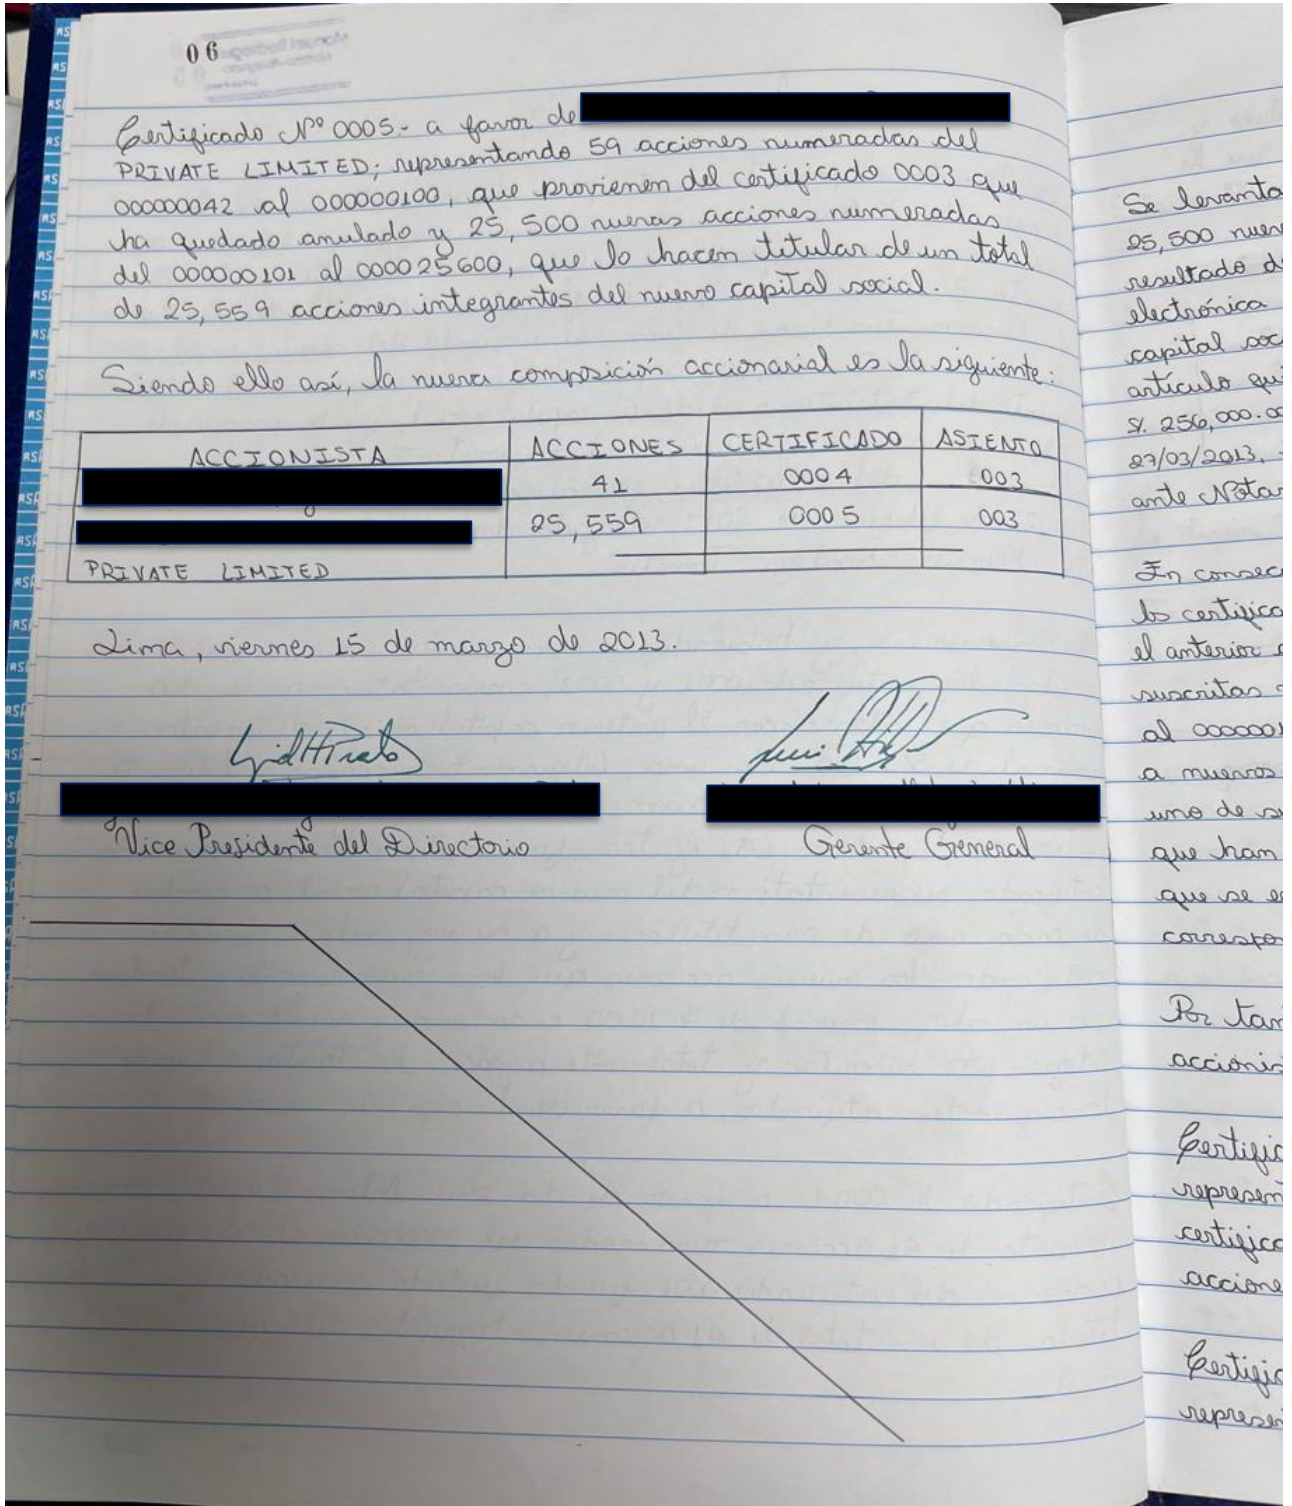 06
Certificado Nº 0005.- a favor de
PRIVATE LIMITED; representando 59 acciones numeradas del
000000042 al 000000100, que provienen del certificado 0003 que
ha quedado anulado y 25,500 nuevas acciones numeradas
del 000000101 al 000025600, que lo hacen titular de un total
de 25,559 acciones integrantes del nuevo capital social.
Siendo ello así, la nueva composición accionarial es la siguiente:
ACCIONISTA ACCIONES CERTIFICADO ASIENTO
41 0004 003
25,559 0005 003
PRIVATE LIMITED
Lima, viernes 15 de marzo de 2013.
Vice Presidente del Directorio Gerente General
Se levanta
25,500 nuev
resultado d
electrónica
capital soc
artículo qui
S/. 256,000.00
27/03/2013,
ante Notar
En consec
los certifica
el anterior
suscritas
al 0000001
a nuevos
uno de su
que han
que se e
correspo
Por tan
accionis
Certific
represen
certifica
accione
Certific
represen